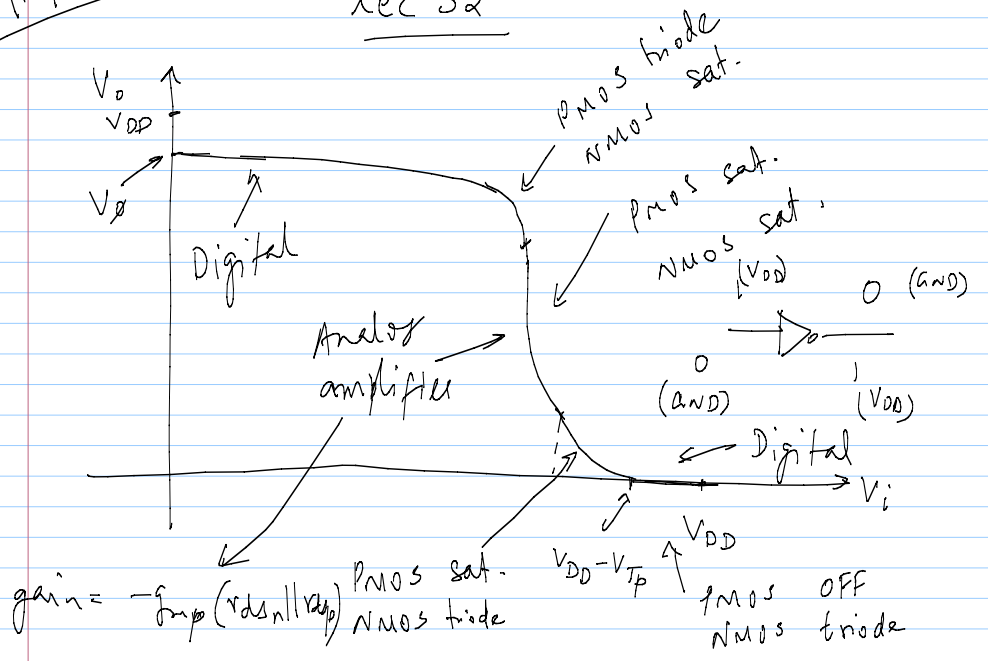 Lec 32
V₀
V_DD
Vø
Digital
PMOS triode
NMOS sat.
PMOS sat.
NMOS sat.
Analog
amplifier
1 (V_DD)
0 (GND)
0
(GND)
1
(V_DD)
Digital
V_i
V_DD - V_Tp
V_DD
gain = -g_mp (r_dsn || r_dsp)
PMOS sat.
NMOS triode
PMOS OFF
NMOS triode